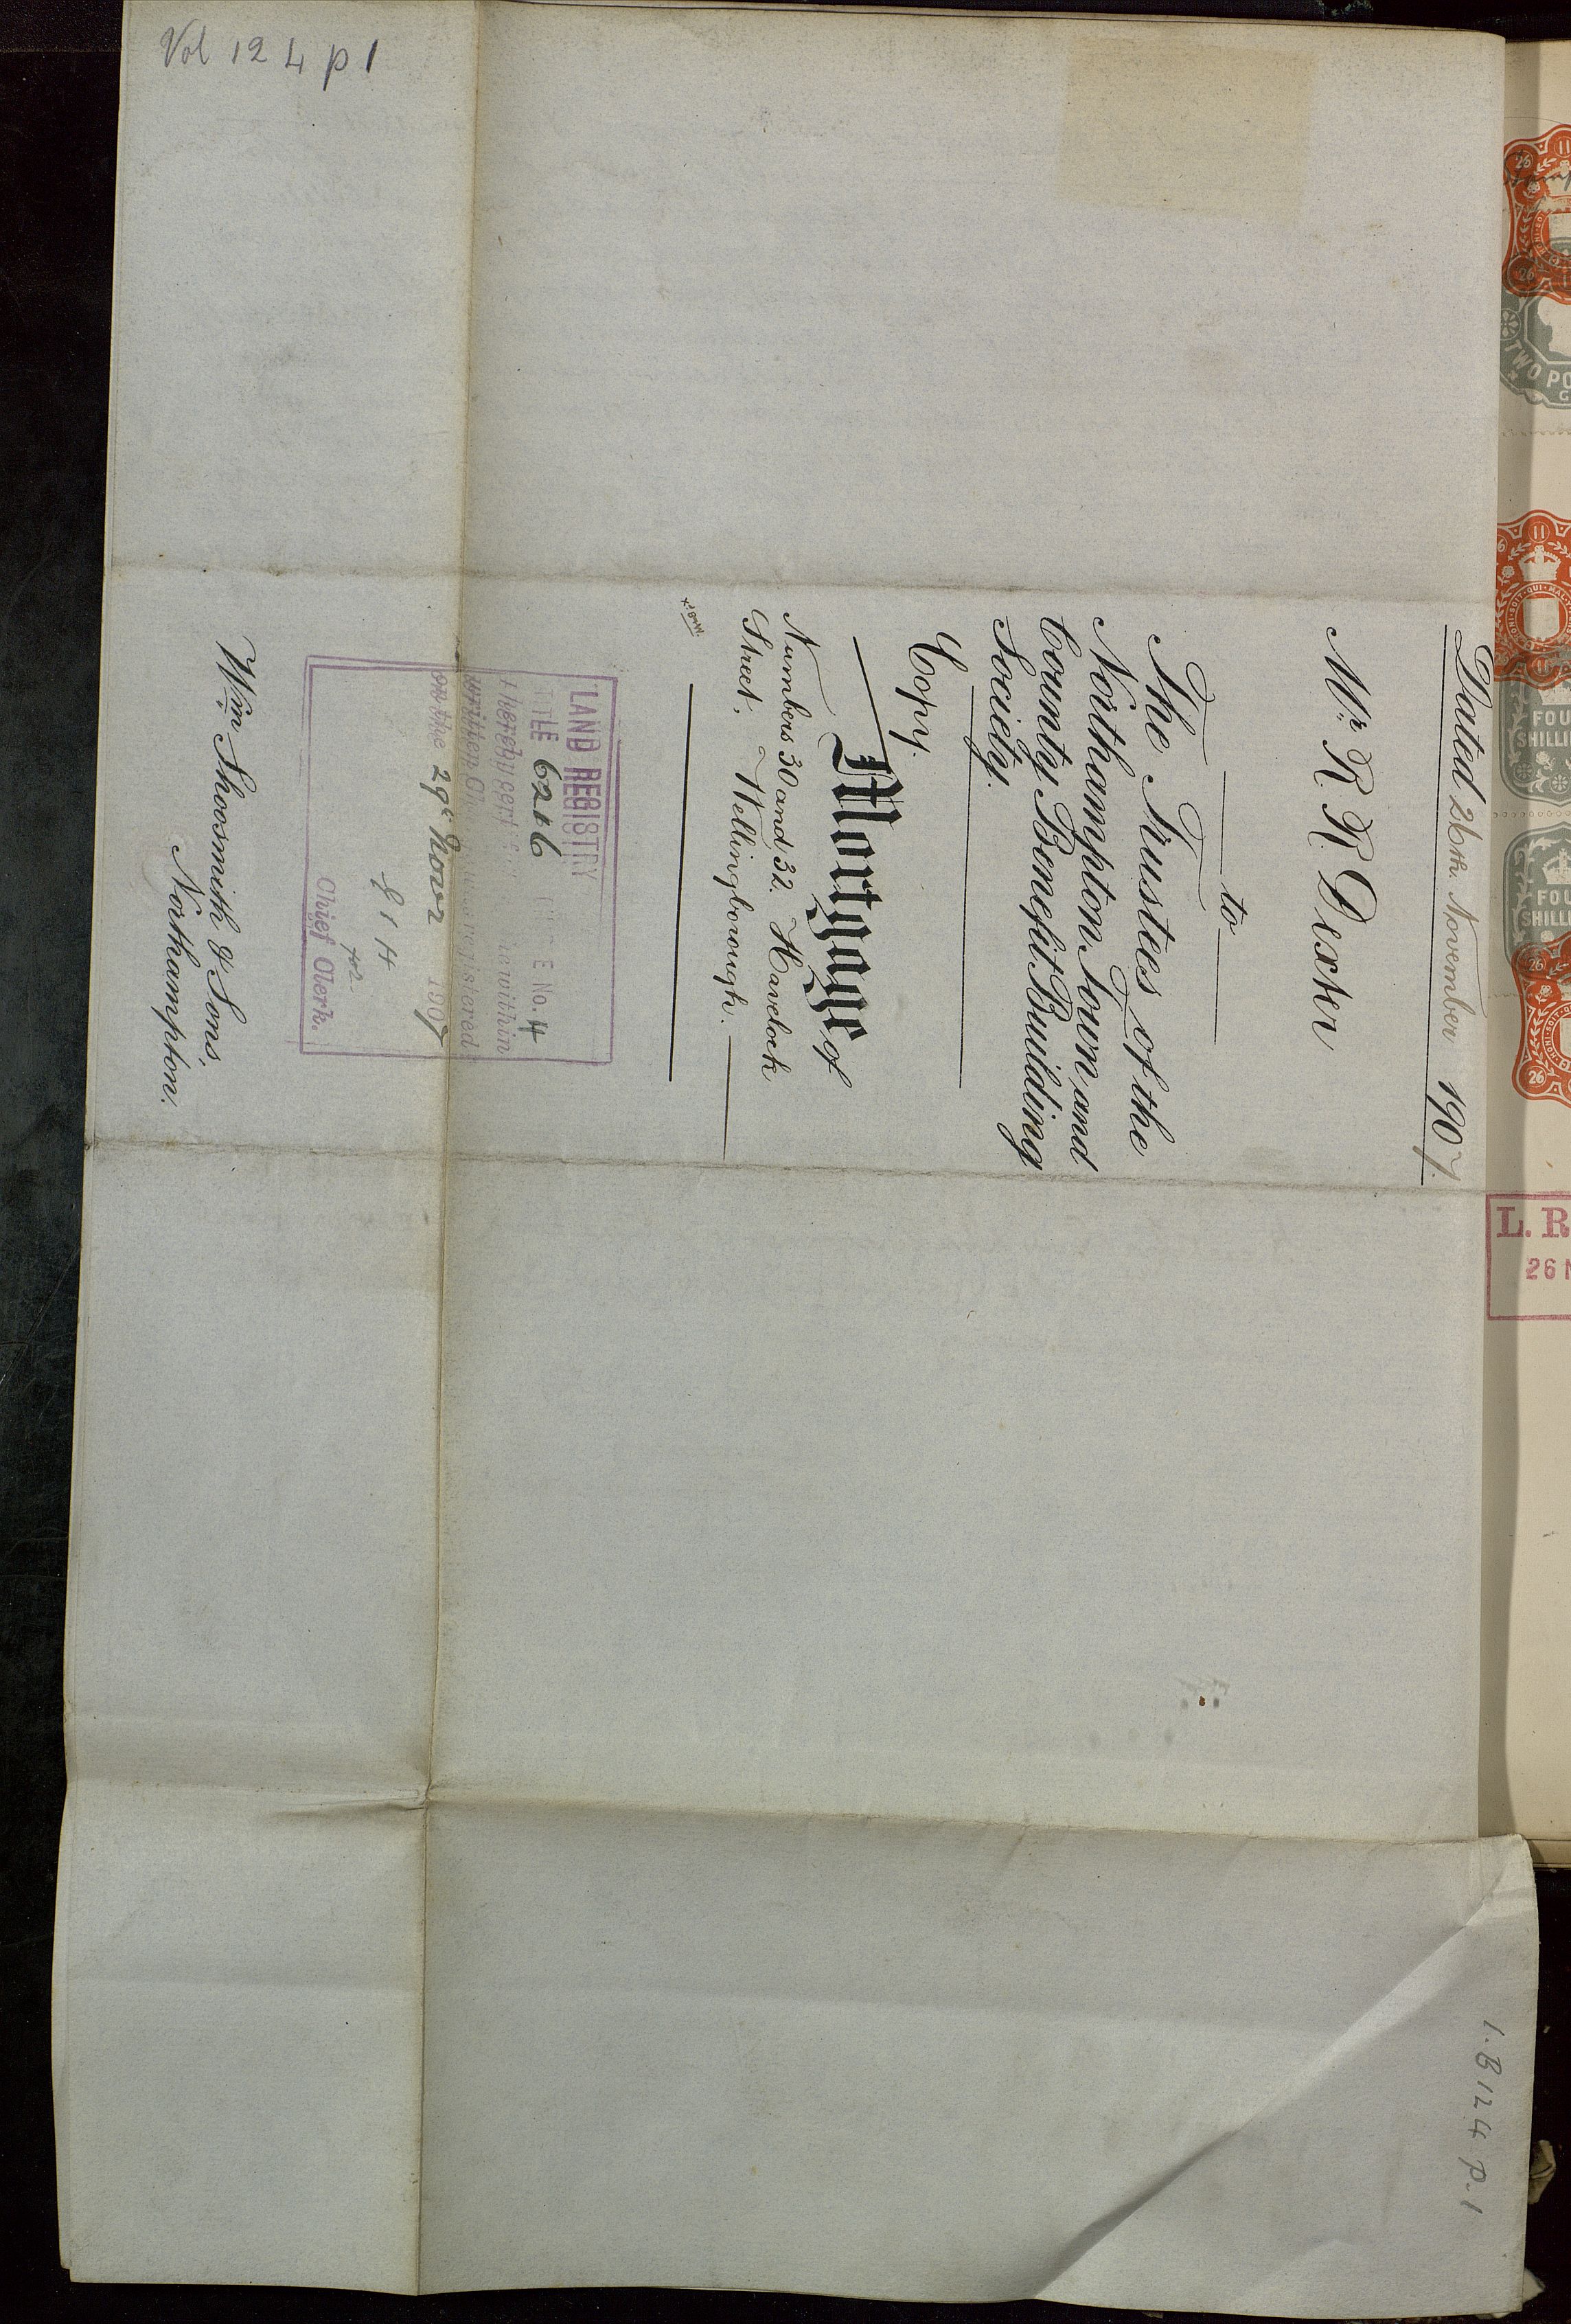 Vol 124 p1
Dated 26th. November 1907.
Mr. R. R. Dexter
to
The Trustees of the
Northampton Town and
County Benefit Building
Society.
Copy.
Mortgage of
Numbers 30 and 32. Havelock
Street, Wellingborough.
LAND REGISTRY
TITLE 6216 No. 4
I hereby within
written was registered
on the 29th Novr 1907
Chief Clerk.
Wm. Shoosmith & Sons,
Northampton.
1.B 124 p.1
TWO PO
FOU
SHILLI
FOU
SHILLI
L. R
26 N